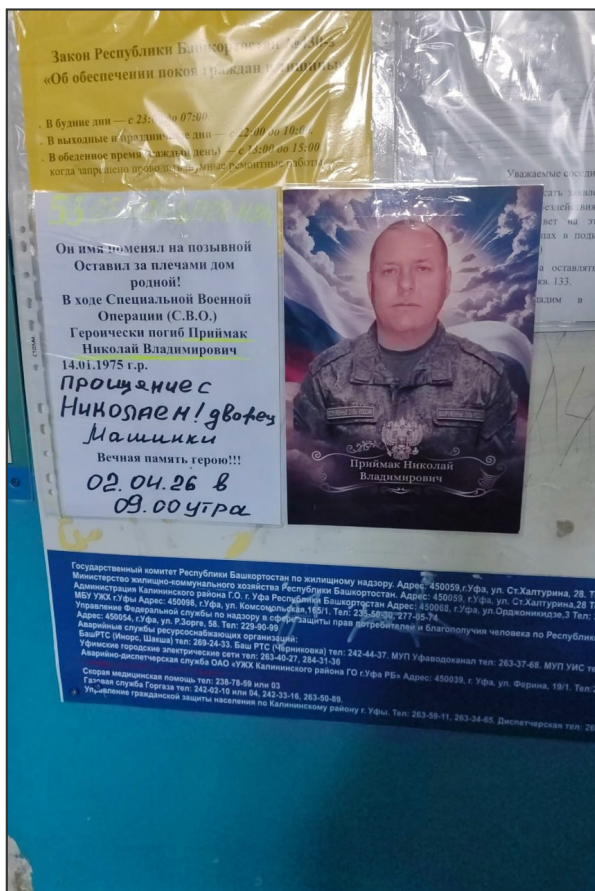 Закон Республики Башкортостан №430-з
«Об обеспечении покоя граждан и тишины»
. В будние дни — с 23:00 до 07:00.
. В выходные и праздничные дни — с 22:00 до 10:00.
. В обеденное время (каждый день) — с 13:00 до 15:00
когда запрещено проводить шумные ремонтные работы
Уважаемые соседи
Он имя поменял на позывной
Оставил за плечами дом
родной!
В ходе Специальной Военной
Операции (С.В.О.)
Героически погиб Приймак
Николай Владимирович
14.01.1975 г.р.
Прощание с
Николаем! дворец
Машинки
Вечная память герою!!!
02.04.26 в
09.00 утра
Приймак Николай
Владимирович
оставлять
кв. 133.
Государственный комитет Республики Башкортостан по жилищному надзору. Адрес: 450059,г.Уфа, ул. Ст.Халтурина, 28. Т
Министерство жилищно-коммунального хозяйства Республики Башкортостан. Адрес: 450059, г.Уфа, ул. Ст.Халтурина,28 Т
Администрация Калининского района Г.О. г. Уфа Республики Башкортостан Адрес: 450068, г.Уфа, ул.Орджоникидзе,3 Тел:
МБУ УЖХ г.Уфы Адрес: 450098, г.Уфа, ул. Комсомольская,165/1. Тел: 277-05-74
Управление Федеральной службы по надзору в сфере защиты прав потребителей и благополучия человека по Республике
Адрес: 450054, г.Уфа, ул. Р.Зорге, 58. Тел: 229-90-99
Аварийные службы ресурсоснабжающих организаций:
БашРТС (Инорс, Шакша) тел: 269-24-33. Баш РТС (Черниковка) тел: 242-44-37. МУП Уфаводоканал тел: 263-37-68. МУП УИС те
Уфимские городские электрические сети тел: 263-40-27, 284-31-36
Аварийно-диспетчерская служба ОАО «УЖХ Калининского района ГО г.Уфа РБ» Адрес: 450039, г. Уфа, ул. Ферина, 19/1. Тел:
Скорая медицинская помощь тел: 238-78-59 или 03
Газовая служба Горгаза тел: 242-02-10 или 04, 242-33-16, 263-50-89.
Управление гражданской защиты населения по Калининскому району г. Уфы. Тел: 263-59-11, 263-34-65. Диспетчерская тел: 26